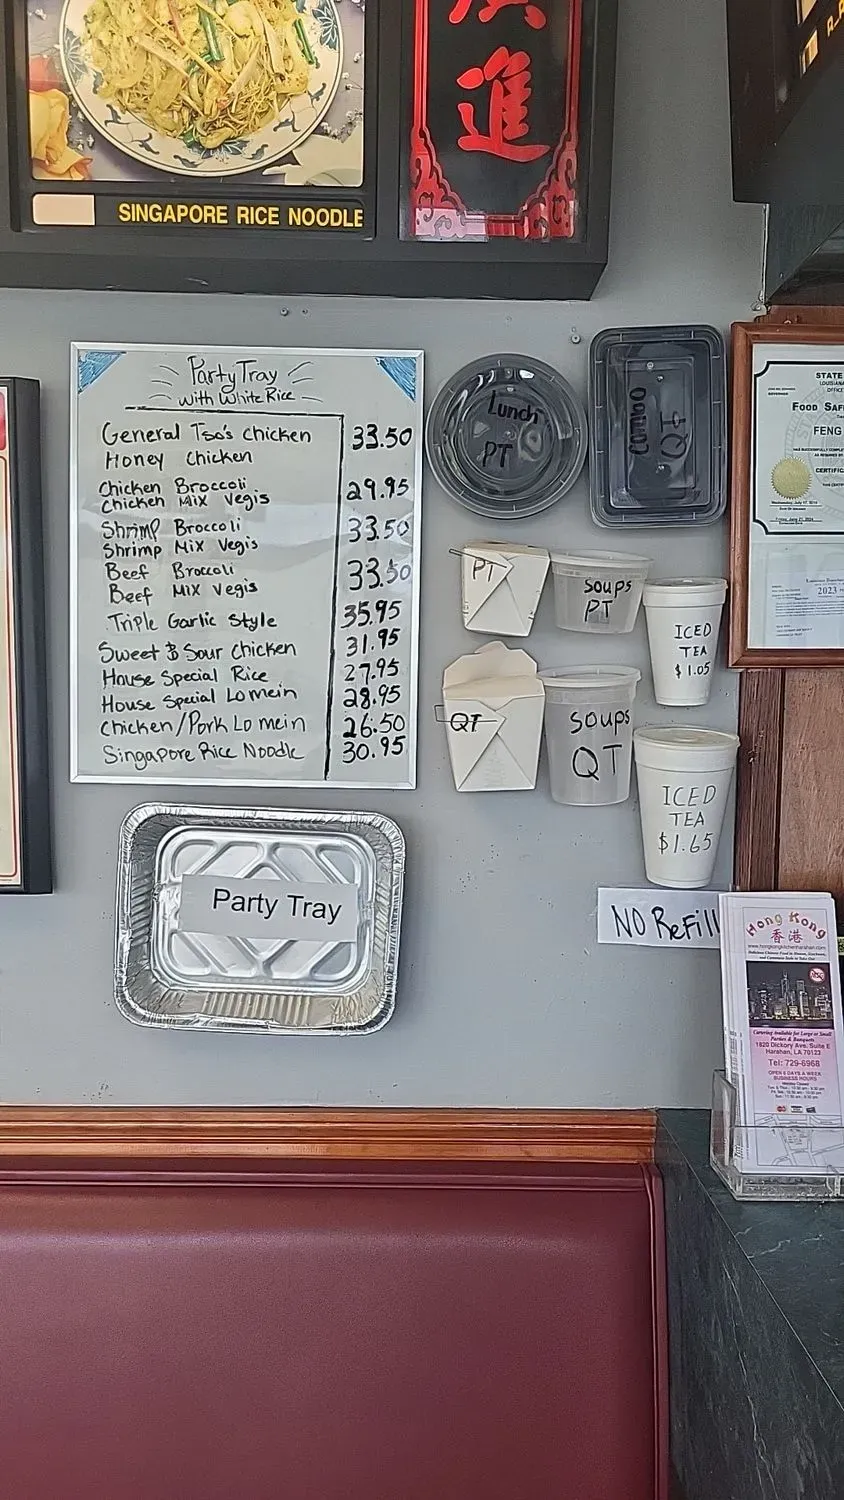 進
SINGAPORE RICE NOODLE
Party Tray
with White Rice
General Tso's Chicken 33.50
Honey Chicken
Chicken Broccoli 29.95
Chicken Mix Vegis
Shrimp Broccoli 33.50
Shrimp Mix Vegis
Beef Broccoli 33.50
Beef Mix Vegis
Triple Garlic Style 35.95
Sweet & Sour Chicken 31.95
House Special Rice 27.95
House Special Lo mein 28.95
Chicken/Pork Lo mein 26.50
Singapore Rice Noodle 30.95
Lunch
PT
Combo
QT
PT
Soups
PT
ICED
TEA
$1.05
QT
Soups
QT
ICED
TEA
$1.65
NO Refill
Party Tray
STATE
LOUISIANA
OFFICE
Food Saf
FENG
CERTIFIC
2023
Hong Kong
香港
www.hongkongkitchenharahan.com
Catering Available for Large or Small
Parties & Banquets
1820 Dickory Ave. Suite E
Harahan, LA 70123
Tel: 729-6968
OPEN 6 DAYS A WEEK
BUSINESS HOURS
Monday Closed